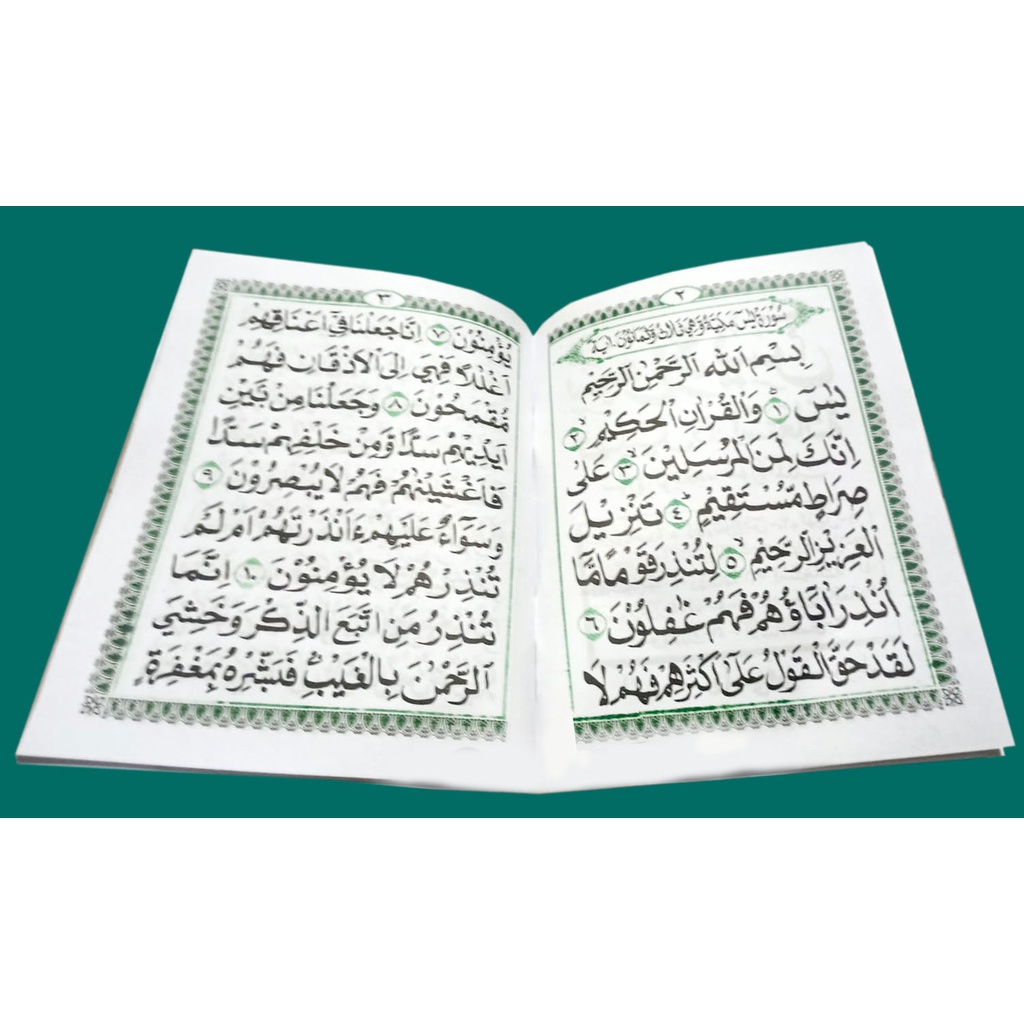 ٢
سُوْرَةُ يٰسٓ مَكِّيَّةٌ وَهِيَ ثَلَاثٌ وَثَمَانُوْنَ اٰيَةً
بِسْمِ اللهِ الرَّحْمٰنِ الرَّحِيْمِ
يٰسٓ ۚ ١ وَالْقُرْاٰنِ الْحَكِيْمِ ۙ ٢
اِنَّكَ لَمِنَ الْمُرْسَلِيْنَ ۙ ٣ عَلٰى
صِرَاطٍ مُّسْتَقِيْمٍ ۗ ٤ تَنْزِيْلَ
الْعَزِيْزِ الرَّحِيْمِ ۙ ٥ لِتُنْذِرَ قَوْمًا مَّا
اُنْذِرَ اٰبَاؤُهُمْ فَهُمْ غٰفِلُوْنَ ٦
لَقَدْ حَقَّ الْقَوْلُ عَلٰى اَكْثَرِهِمْ فَهُمْ لَا
٣
يُؤْمِنُوْنَ ٧ اِنَّا جَعَلْنَا فِيْٓ اَعْنَاقِهِمْ
اَغْلٰلًا فَهِيَ اِلَى الْاَذْقَانِ فَهُمْ
مُّقْمَحُوْنَ ٨ وَجَعَلْنَا مِنْ بَيْنِ
اَيْدِيْهِمْ سَدًّا وَّمِنْ خَلْفِهِمْ سَدًّا
فَاَغْشَيْنٰهُمْ فَهُمْ لَا يُبْصِرُوْنَ ٩
وَسَوَآءٌ عَلَيْهِمْ ءَاَنْذَرْتَهُمْ اَمْ لَمْ
تُنْذِرْهُمْ لَا يُؤْمِنُوْنَ ١٠ اِنَّمَا
تُنْذِرُ مَنِ اتَّبَعَ الذِّكْرَ وَخَشِيَ
الرَّحْمٰنَ بِالْغَيْبِ ۚ فَبَشِّرْهُ بِمَغْفِرَةٍ